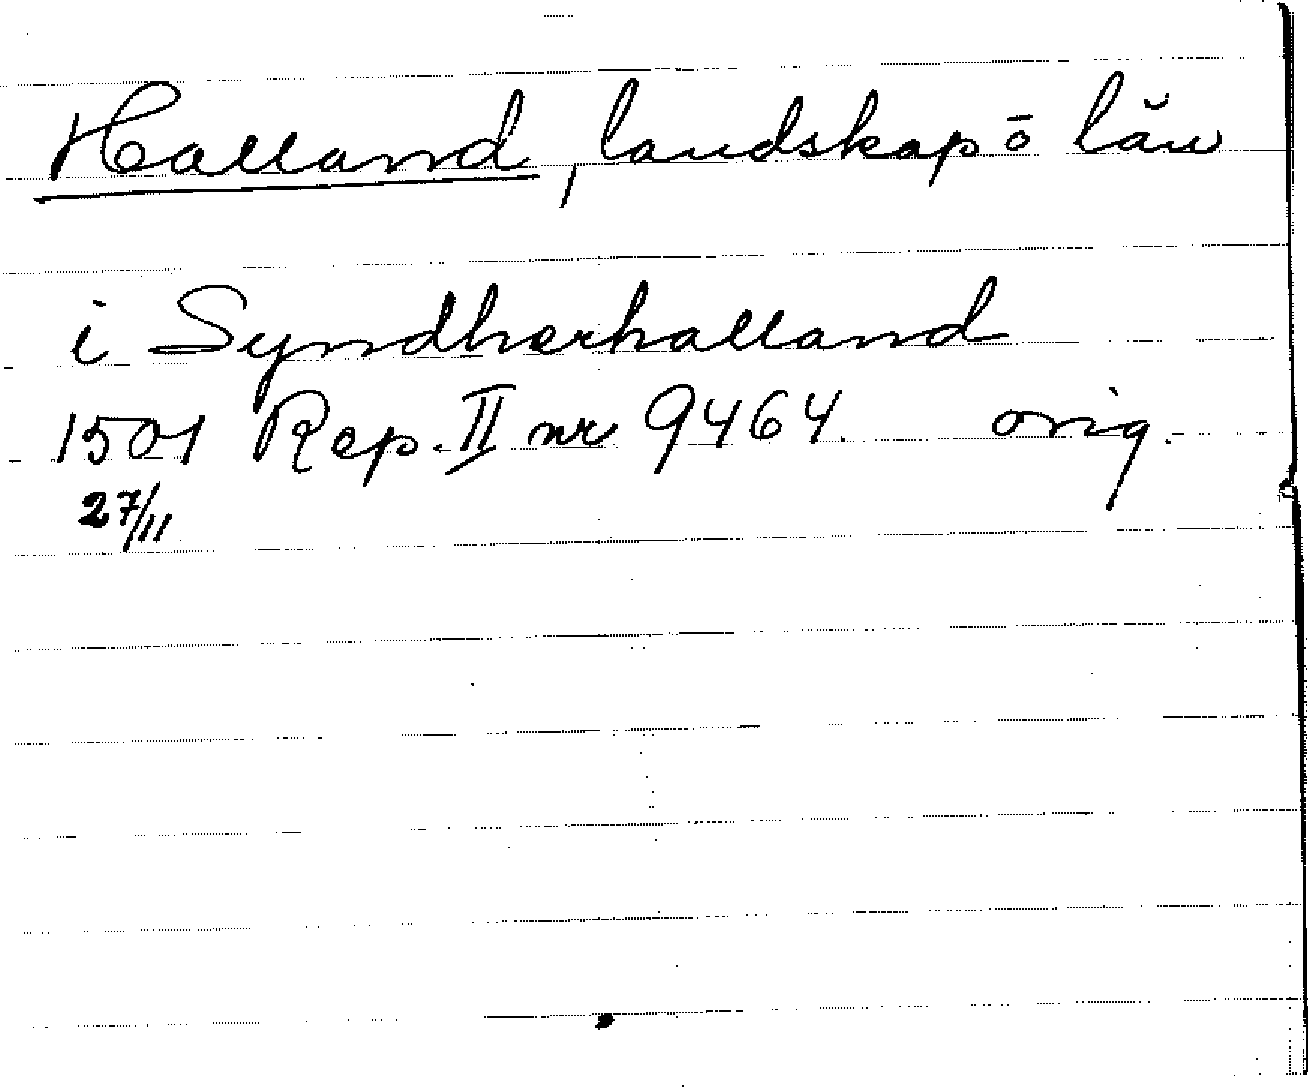 Halland, landskap ō län
i Syndherhalland
1501 Rep. II nr 9464. orig.
27/11